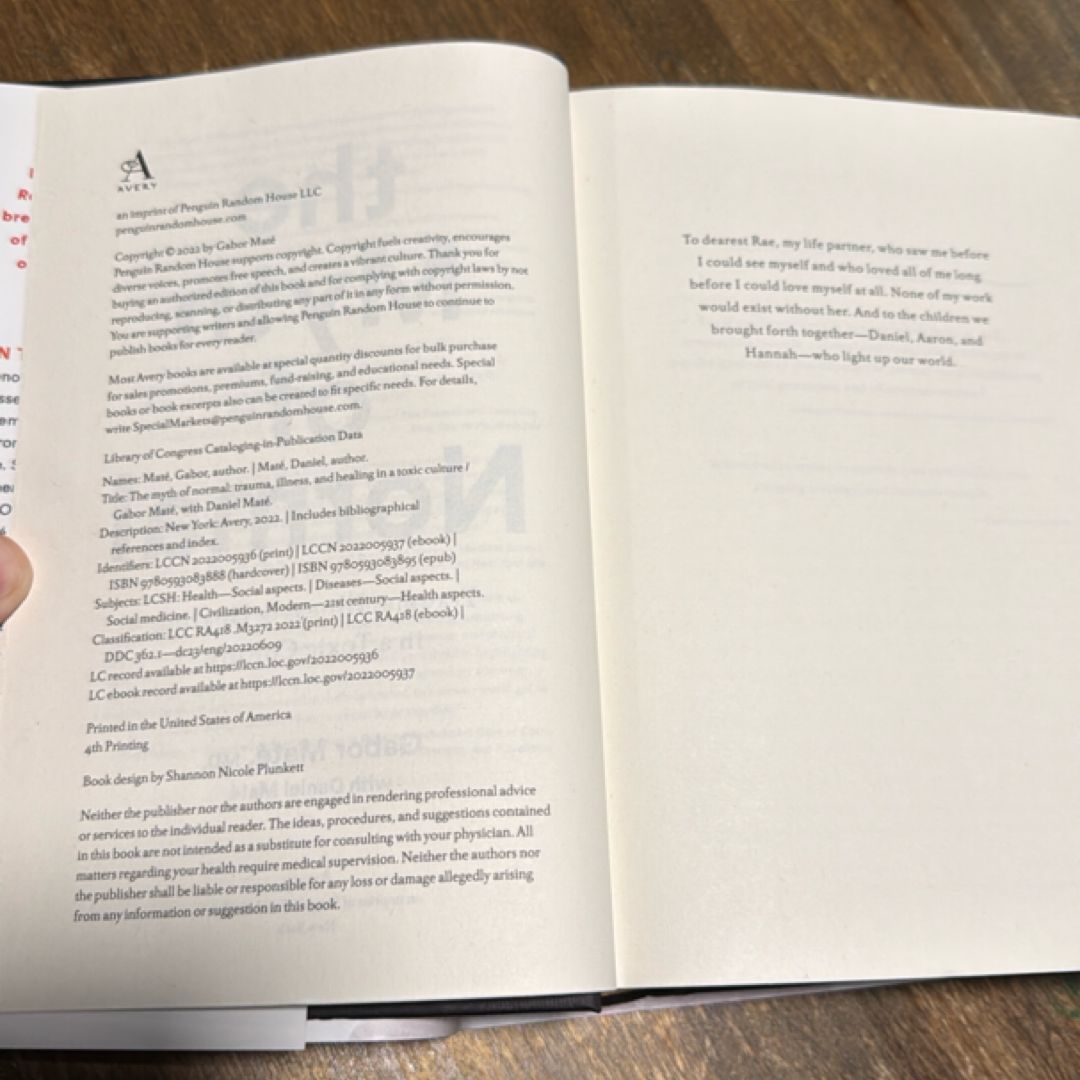 A
AVERY
an imprint of Penguin Random House LLC
penguinrandomhouse.com
Copyright © 2022 by Gabor Maté
Penguin Random House supports copyright. Copyright fuels creativity, encourages
diverse voices, promotes free speech, and creates a vibrant culture. Thank you for
buying an authorized edition of this book and for complying with copyright laws by not
reproducing, scanning, or distributing any part of it in any form without permission.
You are supporting writers and allowing Penguin Random House to continue to
publish books for every reader.
Most Avery books are available at special quantity discounts for bulk purchase
for sales promotions, premiums, fund-raising, and educational needs. Special
books or book excerpts also can be created to fit specific needs. For details,
write SpecialMarkets@penguinrandomhouse.com.
Library of Congress Cataloging-in-Publication Data
Names: Maté, Gabor, author. | Maté, Daniel, author.
Title: The myth of normal: trauma, illness, and healing in a toxic culture /
Gabor Maté, with Daniel Maté.
Description: New York: Avery, 2022. | Includes bibliographical
references and index.
Identifiers: LCCN 2022005936 (print) | LCCN 2022005937 (ebook) |
ISBN 9780593083888 (hardcover) | ISBN 9780593083895 (epub)
Subjects: LCSH: Health—Social aspects. | Diseases—Social aspects. |
Social medicine. | Civilization, Modern—21st century—Health aspects.
Classification: LCC RA418 .M3272 2022 (print) | LCC RA418 (ebook) |
DDC 362.1—dc23/eng/20220609
LC record available at https://lccn.loc.gov/2022005936
LC ebook record available at https://lccn.loc.gov/2022005937
Printed in the United States of America
4th Printing
Book design by Shannon Nicole Plunkett
Neither the publisher nor the authors are engaged in rendering professional advice
or services to the individual reader. The ideas, procedures, and suggestions contained
in this book are not intended as a substitute for consulting with your physician. All
matters regarding your health require medical supervision. Neither the authors nor
the publisher shall be liable or responsible for any loss or damage allegedly arising
from any information or suggestion in this book.
To dearest Rae, my life partner, who saw me before
I could see myself and who loved all of me long
before I could love myself at all. None of my work
would exist without her. And to the children we
brought forth together—Daniel, Aaron, and
Hannah—who light up our world.